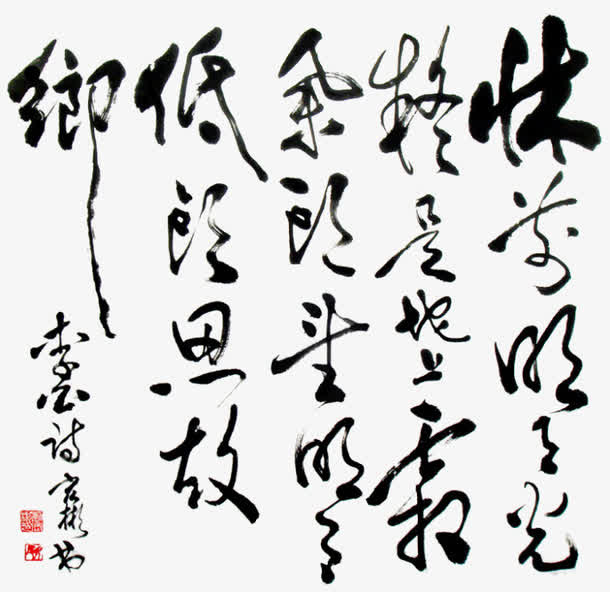 牀前明月光
疑是地上霜
舉頭望明月
低頭思故
鄉
李白詩 宏彬書